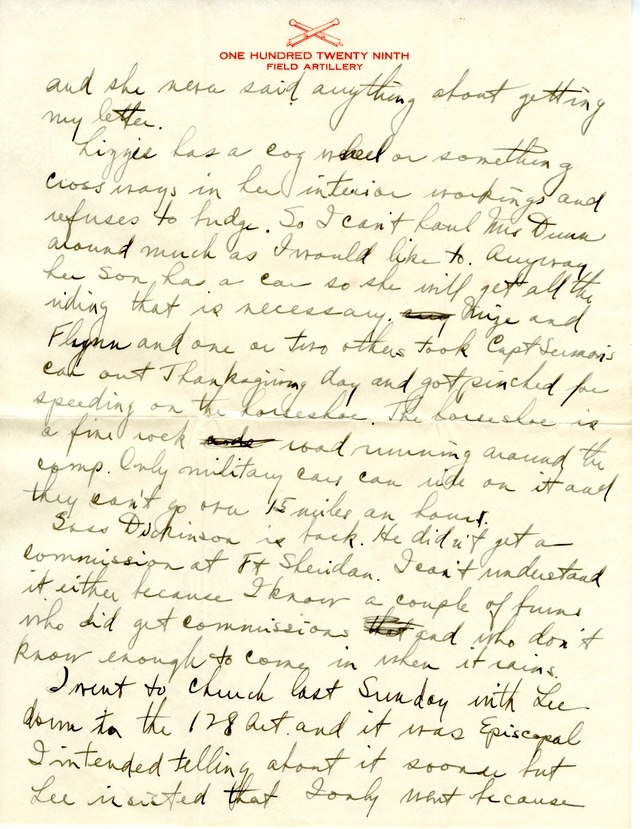 ONE HUNDRED TWENTY NINTH
FIELD ARTILLERY
and she never said anything about getting
my letter.
Lizzie has a cog wheel or something
crossways in her interior workings and
refuses to budge. So I can't haul Mrs Dunn
around much as I would like to. Anyway
her son has a car so she will get all the
riding that is necessary. any and
Flynn and one or two others took Capt Sermon's
car out Thanksgiving day and got pinched for
speeding on the horseshoe. The horseshoe is
a fine rock road running around the
camp. Only military cars can ride on it and
they can't go over 15 miles an hour.
Dickinson is back. He didn't get a
commission at Ft Sheridan. I can't understand
it either because I know a couple of bums
who did get commissions that and who don't
know enough to come in when it rains.
I went to church last Sunday with Lee
down to the 128 Art. and it was Episcopal
I intended telling about it sooner but
Lee insisted that I only went because